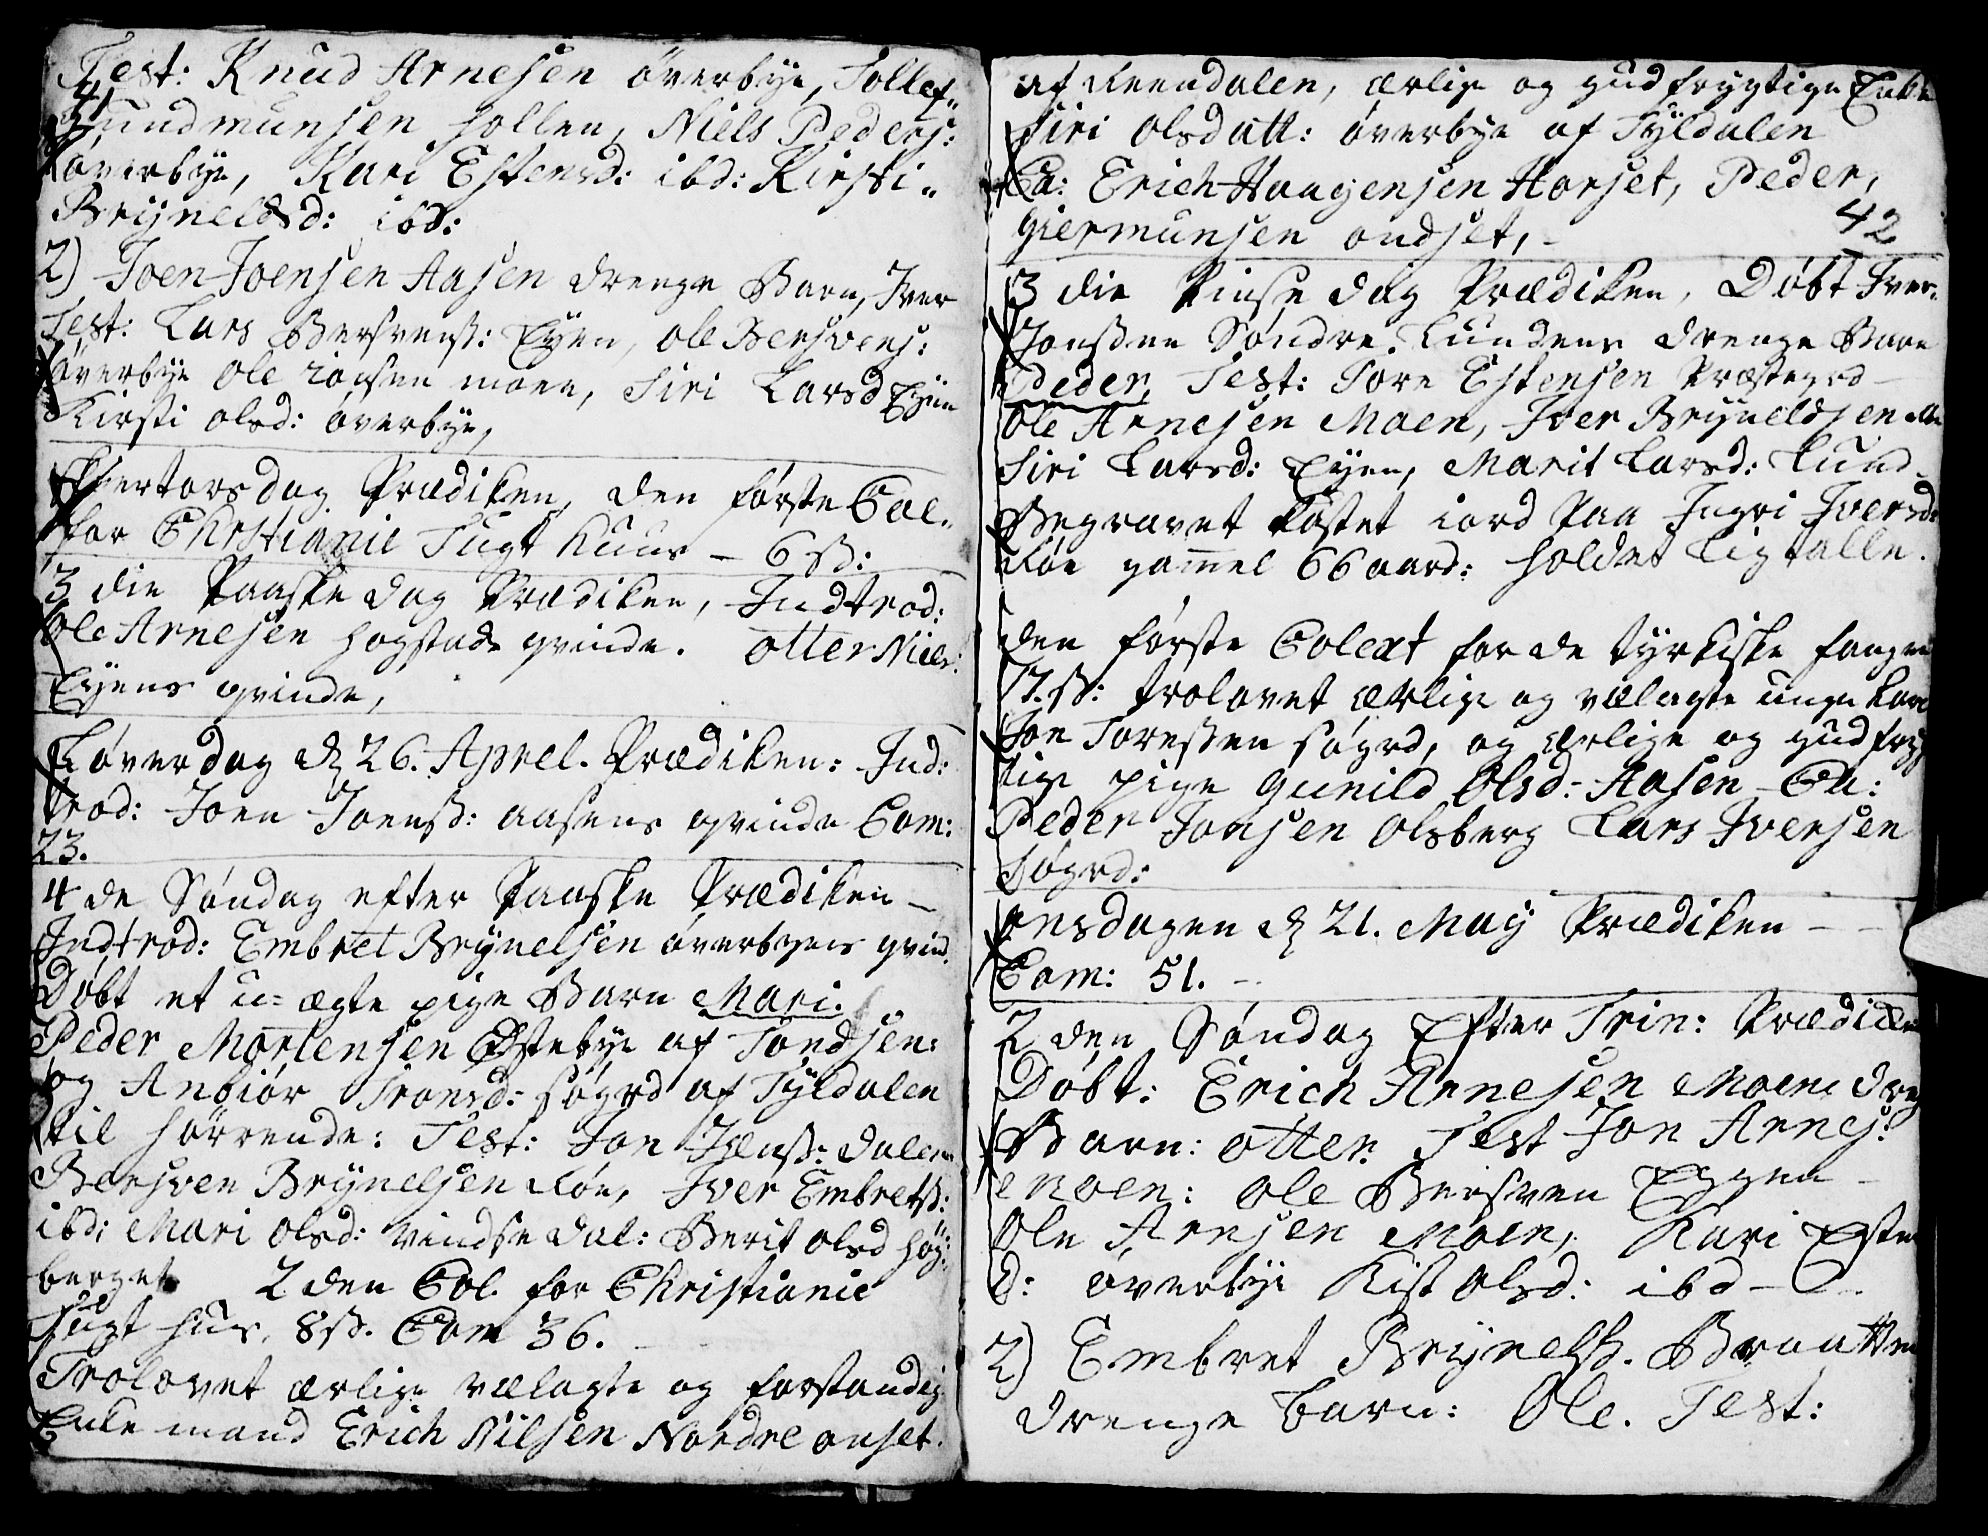 Test: Knud Arnesen överbye, Tollef
Gundmunsen hollen, Niels Peders:
öwerbye, Kari Estensd: ibd: Kirsti
Brÿneldsd: ibd:
2) Joen Joensen Aasen drenge Barn, Iver
Test: Lars Bersvenß: Eyen, Ole Bersvens:
öwerbye Ole ionsen moen, Siri Larsd Eyen
Kirsti olsd: öwerbye,
Skiertorsdag Prædiken, den første Col.
for Christianie Tugt huus – 6 ß:
3 die Paaske dag Prædiken, Indtrod:
Ole Arnesen hogstads qvinde. Otter Niels:
Eyens qvinde,
Löverdag d 26. Aprel. Prædiken: Ind:
trod: Joen Joenß: aasens qvinde Com:
23.
4 de Søndag efter Paaske Prædiken –
Indtrod: Embret Brÿnelsen öwerbyens qvind.
Döbt et u= ægte pige Barn Mari.
Peder Mortensen Østebye af Tondsen:
og Anbiör Tronsd: søgrd af Tÿldalen
til hörrende: Test: Jon Jenß: dalen
Bersven Brÿnelsen Röe, Iver Embretß:
ibd: Mari olsd: vindse dal: Berit olsd høg:
berget 2 den Col. for Christianie
Tugt hus, 8 ß. Com 36.
Trolovet ærlige velagte og forstandig
Enke mand Erich Nilsen Nordre onset.
af Reendalen, ærlige og gudfrygtige Enke
Siri olsdatt: öwerbye af Tÿldalen
Ca: Erich Haagensen Horset, Peder
Giermunsen ondset, –
42
3 die Pinse dag Prædiken, Döbt Iver
Jonßen Søndre Lundens drenge Barn
Peder, Test: Tore Estensen Præstegrd –
Ole Arnesen Moen, Iver Brÿneldsen
Siri Larsd: Eyen, Marit Larsd: Lund
Begravet kastet iord paa Ingri Iversd:
Röe gammel 66 aard: holdet Ligtalle.
den første Colext for de tyrkiske fanger
17. ß: trolovet ærlige og velagte unge karl
Jon Toreßen søgrd, og ærlige og gudfryg
tige pige Gunild Olsd: Aasen Ca:
Peder Jonsen Olsberg Lars Iversen
søgrd:
onsdagen d 21. Maÿ Prædiken – –
Com: 51. –
2 den Søndag Efter Trin: Prædiken
Döbt: Erich Arnesen Moens dreng
Barn: otter. Test Jon Arnes:
moen: Ole Bersven Eggen –
Ole Arnsen Moen, Kari Esten
d: öwerbye Kist Olsd: ibd –
2) Embret Brÿnelß. Braatten
drenge barn: Ole. Test: